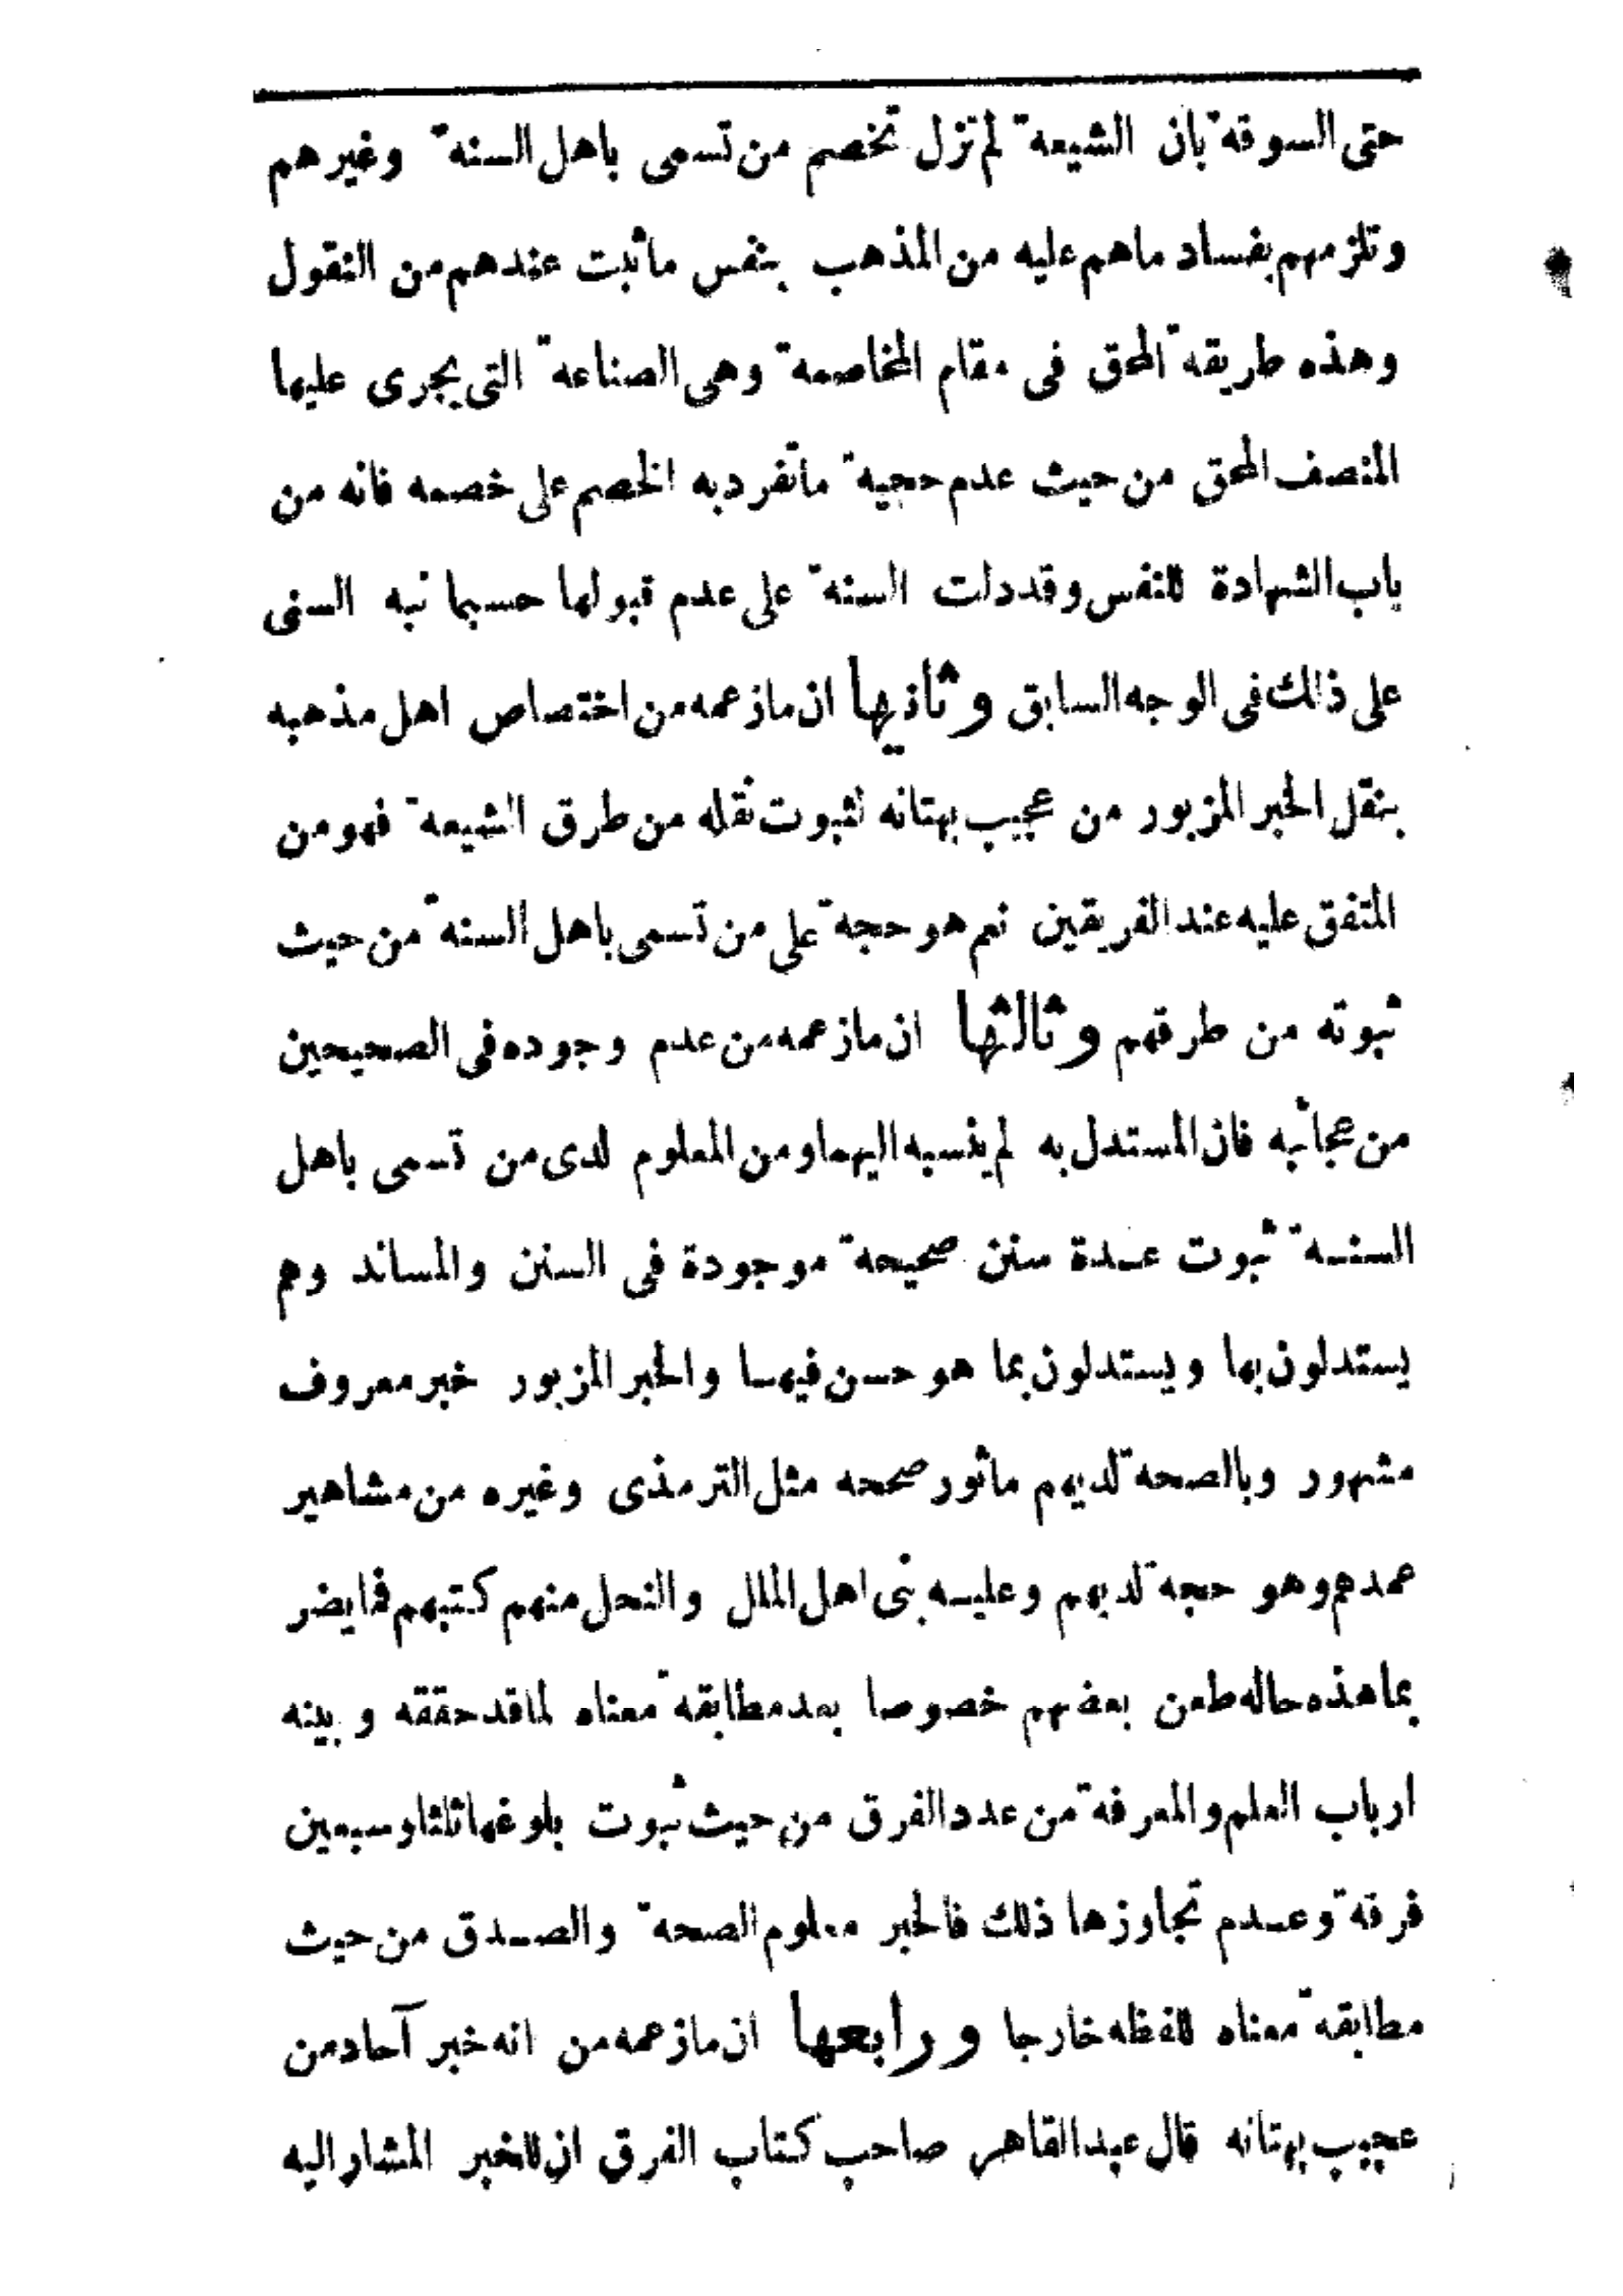 حتى السوقة بان الشيعة لم تزل تخصم من تسمى باهل السنة وغيرهم
وتلزمهم بفساد ماهم عليه من المذهب بنفس ماثبت عندهم من النقول
وهذه طريقة المحق فى مقام المخاصمة وهى الصناعة التى يجرى عليها
المنصف المحق من حيث عدم حجية ماتفرد به الخصم على خصمه فانه من
باب الشهادة للنفس وقد دلت السنة على عدم قبولها حسبما نبه السنى
على ذلك فى الوجه السابق وثانيها ان مازعمه من اختصاص اهل مذهبه
بنقل الخبر المزبور من عجيب بهتانه لثبوت نقله من طرق الشيعة فهو من
المتفق عليه عند الفريقين نعم هو حجة على من تسمى باهل السنة من حيث
ثبوته من طرقهم وثالثها ان مازعمه من عدم وجوده فى الصحيحين
من عجائبه فان المستدل به لم ينسبه اليهما ومن المعلوم لدى من تسمى باهل
السنة ثبوت عدة سنن صحيحة موجودة فى السنن والمساند وهم
يستدلون بها ويستدلون بما هو حسن فيها والخبر المزبور خبر معروف
مشهور وبالصحة لديهم ماثور صححه مثل الترمذى وغيره من مشاهير
عمدهم وهو حجة لديهم وعليه بنى اهل الملل والنحل منهم كتبهم فما يضر
بما هذه حاله طعن بعضهم خصوصا بعد مطابقة معناه لما قد حققه وبينه
ارباب العلم والمعرفة من عدد الفرق من حيث ثبوت بلوغها ثلثا وسبعين
فرقة وعدم تجاوزها ذلك فالخبر معلوم الصحة والصدق من حيث
مطابقة معناه للفظه خارجا ورابعها ان مازعمه من انه خبر آحاد من
عجيب بهتانه قال عبد القاهر صاحب كتاب الفرق ان للخبر المشار اليه